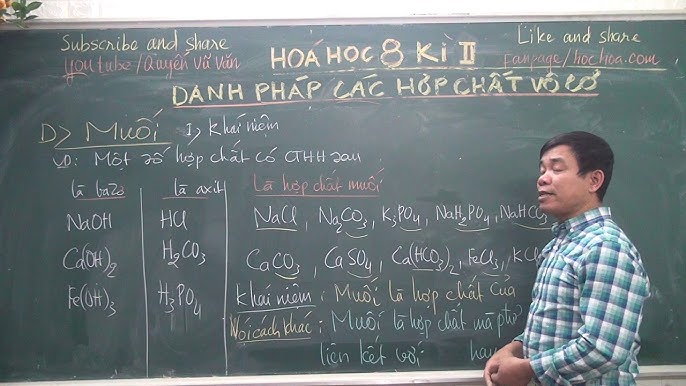 Subscribe and share
Youtube/Quyến Vũ Văn
HOÁ HỌC 8 KÌ II
Like and share
Fanpage/hochoa.com
DANH PHÁP CÁC HỢP CHẤT VÔ CƠ
D> Muối I> Khái niệm
VD: Một số hợp chất có CTHH sau
là bazơ
NaOH
Ca(OH)₂
Fe(OH)₃
là axit
HCl
H₂CO₃
H₃PO₄
Là hợp chất muối
NaCl, Na₂CO₃, K₃PO₄, NaH₂PO₄, NaHCO
CaCO₃, CaSO₄, Ca(HCO₃)₂, FeCl₃, KCl
Khái niệm: Muối là hợp chất của
Nói cách khác: Muối là hợp chất mà
liên kết với hay